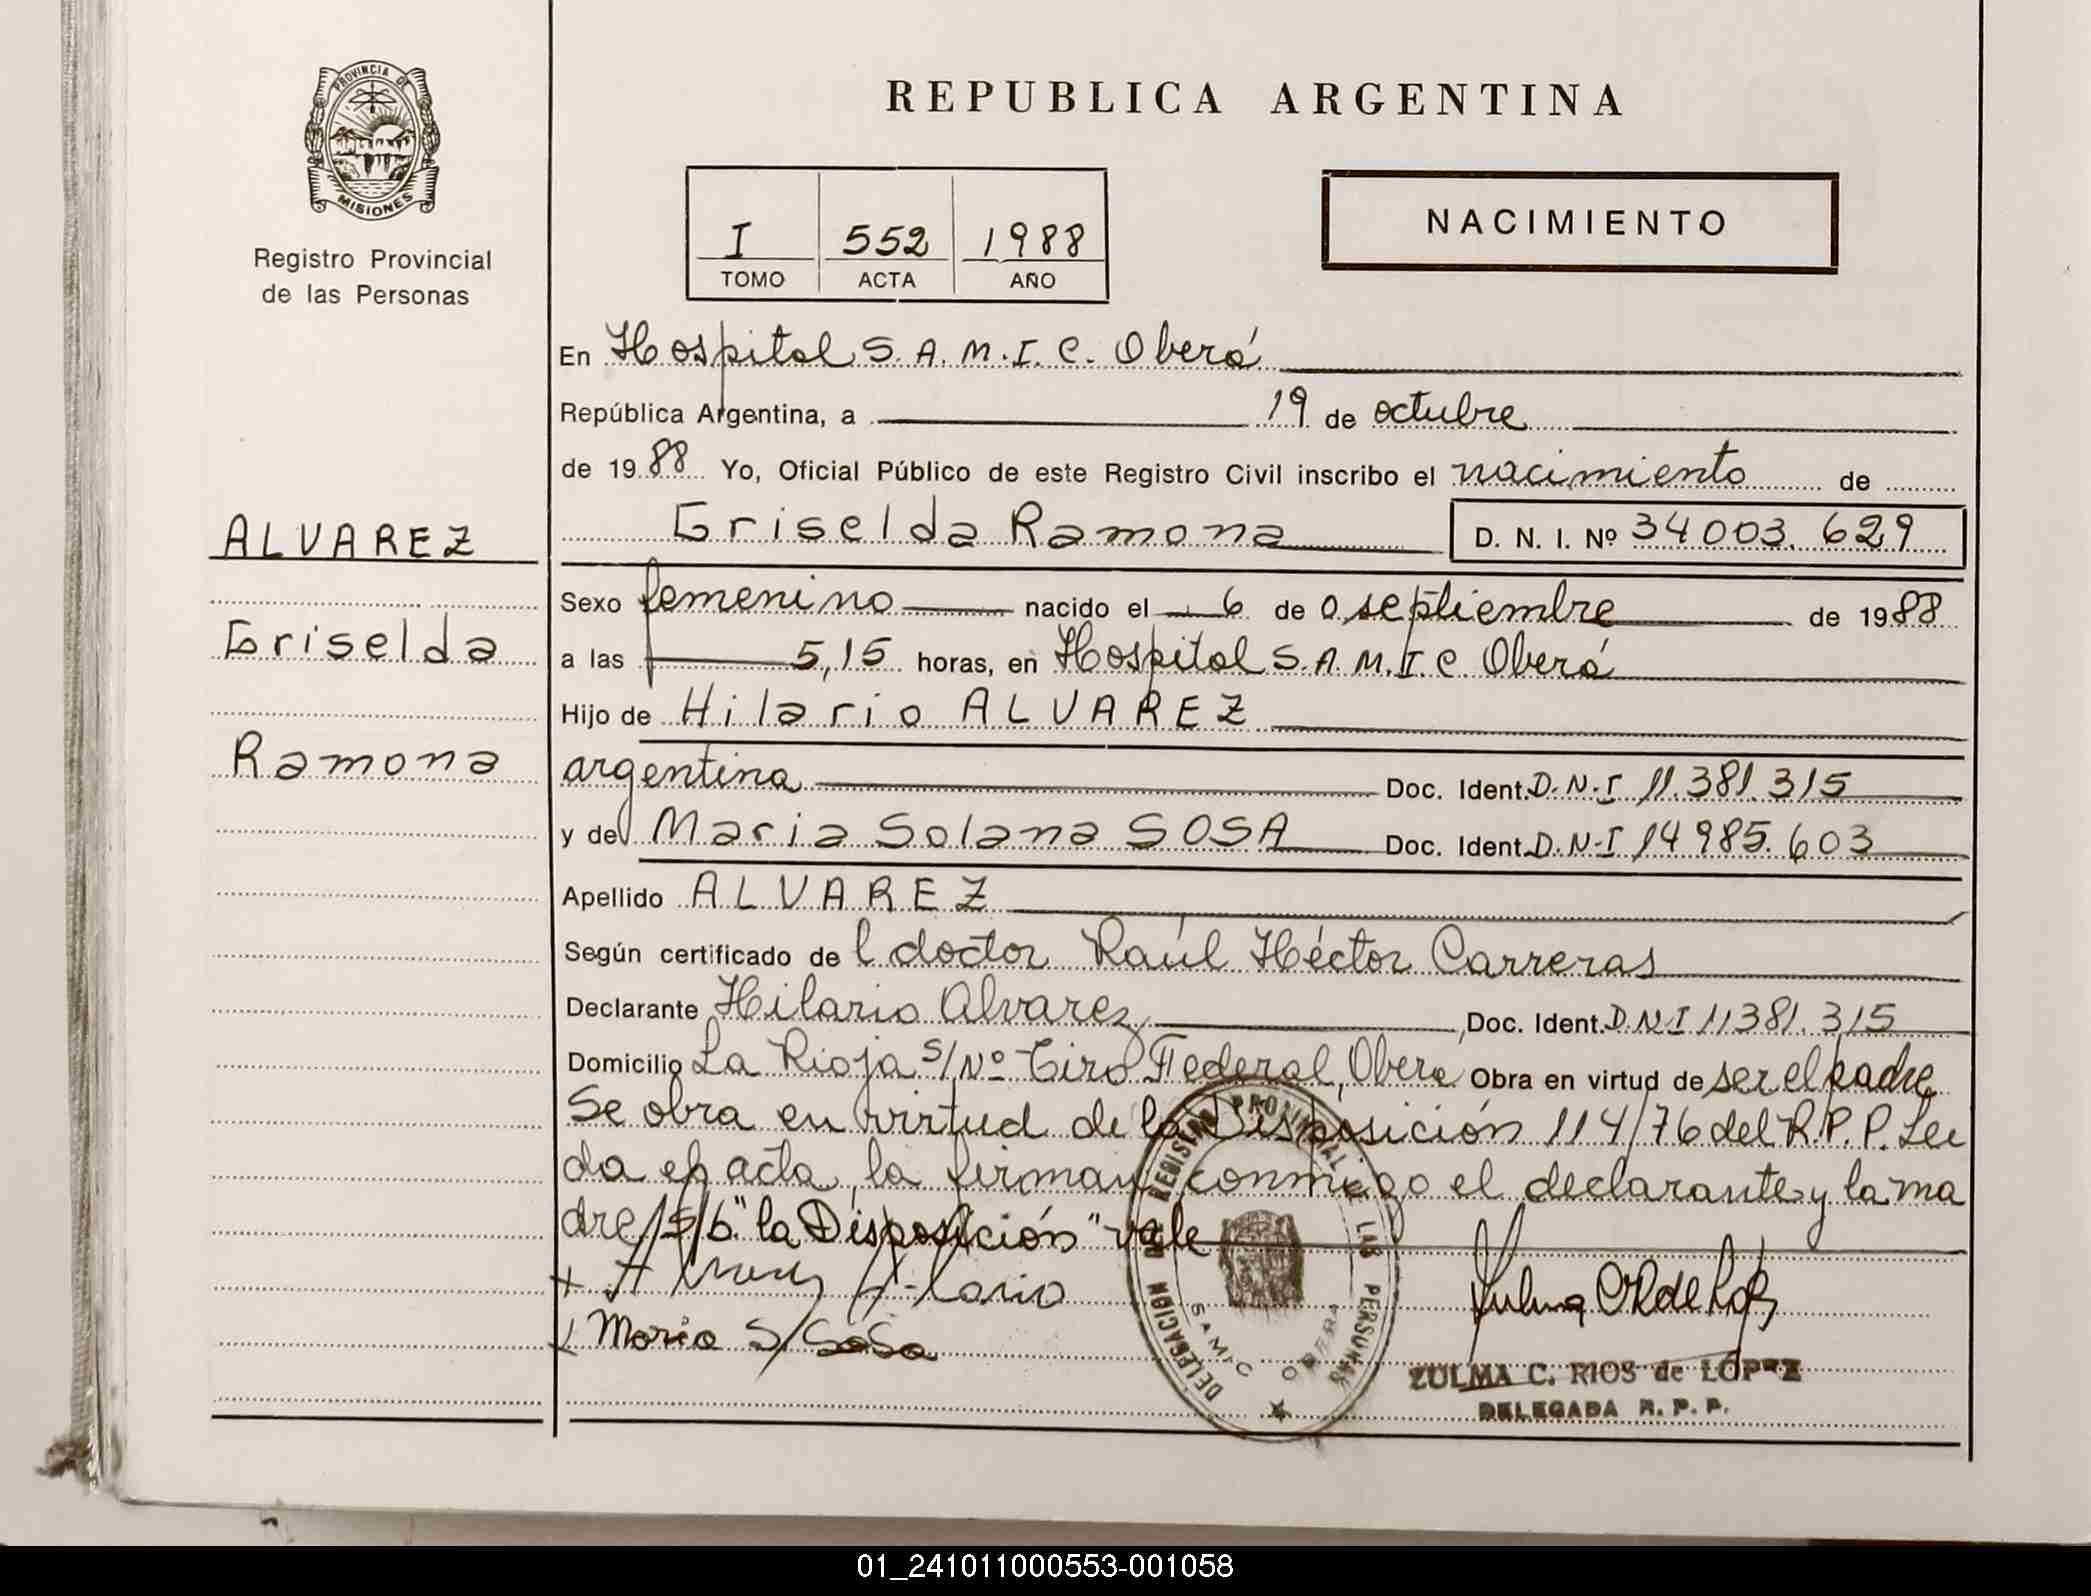 PROVINCIA DE
MISIONES
Registro Provincial
de las Personas
REPUBLICA ARGENTINA
I 552 1988
TOMO ACTA AÑO
NACIMIENTO
En Hospital S.A.M.I.C. Oberá
República Argentina, a 19 de octubre
de 1988 Yo, Oficial Público de este Registro Civil inscribo el nacimiento de
ALVAREZ
Griselda Ramona D. N. I. Nº 34003.629
Sexo femenino nacido el 6 de septiembre de 1988
Griselda
a las 5,15 horas, en Hospital S.A.M.I.C. Oberá
Hijo de Hilario ALVAREZ
Ramona
argentina Doc. Ident. D.N.I 11.381.315
y de Maria Solana SOSA Doc. Ident. D.N.I 14985.603
Apellido ALVAREZ
Según certificado de l doctor Raúl Héctor Carreras
Declarante Hilario Alvarez Doc. Ident. D.N.I 11381.315
Domicilio La Rioja S/Nº Tiro Federal, Oberá Obra en virtud de ser el padre
Se obra en virtud de la Disposición 114/76 del R.P.P. Lei
da el acta, la firman conmigo el declarante y la ma
dre/S/b "la Disposición" vale
Maria S/ SoSa
DELEGACION REGISTRO PROVINCIAL DE LAS PERSONAS
SAMIC OBERA
ZULMA C. RIOS de LÓPEZ
DELEGADA R. P. P.
01_241011000553-001058